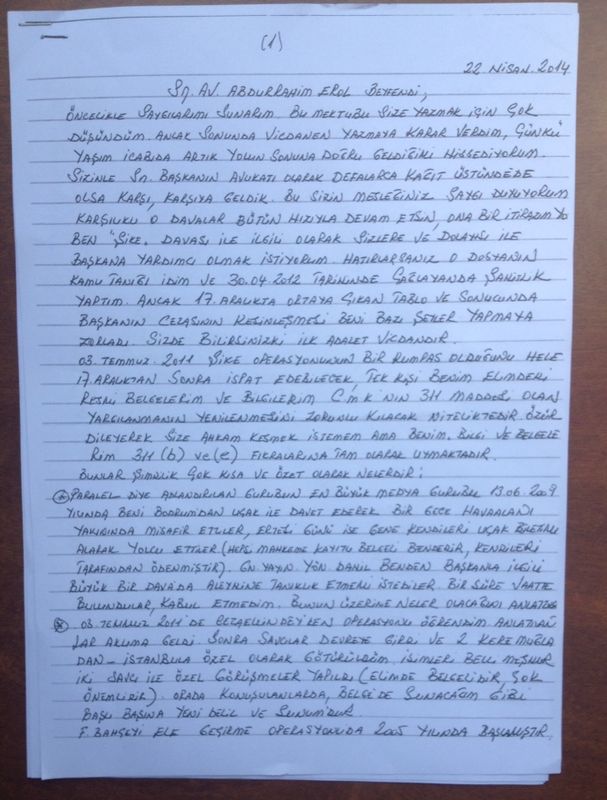 (1)
22 NİSAN.2014
Sn. AV. ABDURRAHİM EROL BEYFENDİ,
ÖNCELİKLE SAYGILARIMI SUNARIM. BU MEKTUBU SİZE YAZMAK İÇİN ÇOK
DÜŞÜNDÜM. ANCAK SONUNDA VİCDANEN YAZMAYA KARAR VERDİM, ÇÜNKÜ
YAŞIM İCABIDA ARTIK YOLUN SONUNA DOĞRU GELDİĞİMİ HİSSEDİYORUM.
SİZİNLE Sn. BAŞKANIN AVUKATI OLARAK DEFALARCA KAĞIT ÜSTÜNDEDE
OLSA KARŞI, KARŞIYA GELDİK. BU SİZİN MESLEĞİNİZ SAYGI DUYUYORUM
KARŞILIKLI O DAVALAR BÜTÜN HIZIYLA DEVAM ETSİN, ONA BİR İTİRAZIM YO
BEN "ŞİKE. DAVASI İLE İLGİLİ OLARAK SİZLERE VE DOLAYISI İLE
BAŞKANA YARDIMCI OLMAK İSTİYORUM. HATIRLARSANIZ O DOSYANIN
KAMU TANIĞI İDİM VE 30.04.2012 TARİHİNDE ÇAĞLAYANDA ŞAHİTLİK
YAPTIM. ANCAK 17.ARALIKTA ORTAYA ÇIKAN TABLO VE SONUCUNDA
BAŞKANIN CEZASININ KESİNLEŞMESİ BENİ BAZI ŞEYLER YAPMAYA
ZORLADI. SİZDE BİLİRSİNİZKİ İLK ADALET VİCDANDIR.
03.TEMMUZ.2011 ŞİKE OPERASYONUNUN BİR KUMPAS OLDUĞUNU HELE
17.ARALIKTAN SONRA İSPAT EDEBİLECEK, TEK KİŞİ BENİM ELİMDEKİ
RESMİ BELGELERİM VE BİLGİLERİM C.M.K'NIN 311 MADDESİ OLAN
YARGILANMANIN YENİLENMESİNİ ZORUNLU KILACAK NİTELİKTEDİR. ÖZÜR
DİLEYEREK SİZE AHKAM KESMEK İSTEMEM AMA BENİM, BİLGİ VE BELGELE
RİM 311 (b) ve (e) FIKRALARINA TAM OLARAK UYMAKTADIR.
BUNLAR ŞİMDİLİK ÇOK KISA VE ÖZET OLARAK NELERDİR:
PARALEL DİYE ADLANDIRILAN GURUBUN EN BÜYÜK MEDYA GURUBU 13.06.2009
YILINDA BENİ BODRUMDAN UÇAK İLE DAVET EDEREK BİR GECE HAVAALANI
YAKININDA MİSAFİR ETTİLER, ERTESİ GÜNÜ İSE GENE KENDİLERİ UÇAK BİLETİMİ
ALARAK YOLCU ETTİLER (HEPSİ MAHKEMDE KAYITLI BELGELİ BENDEDİR, KENDİLERİ
TARAFINDAN ÖDENMİŞTİR). GN YAYIN YÖN DAHİL BENDEN BAŞKANLA İLGİLİ
BÜYÜK BİR DAVA'DA ALEYHİNE TANIKLIK ETMEMİ İSTEDİLER. BİR SÜRE VAATTE
BULUNDULAR, KABUL ETMEDİM. BUNUN ÜZERİNE NELER OLACAĞINI ANLATTILAR
03.TEMMUZ 2011'DE CEZAEVİNDEYİKEN OPERASYONU ÖĞRENDİM ANLATTIKLARI
LAR AKLIMA GELDİ SONRA SAVCILAR DEVREYE GİRDİ VE 2 KERE MUĞLA
DAN - İSTANBULA ÖZEL OLARAK GÖTÜRÜLDÜM, İSİMLERİ BELLİ MEŞHUR
İKİ SAVCI İLE ÖZEL GÖRÜŞMELER YAPILDI (ELİMDE BELGELİDİR, ÇOK
ÖNEMLİDİR). ORADA KONUŞULANLARDA, BELGİDE SUNACAĞIM GİBİ
BAŞLI BAŞINA YENİ DELİL VE SUNUMDUR.
F. BAHÇEYİ ELE GEÇİRME OPERASYONUDA 2005 YILINDA BAŞLAMIŞTIR.